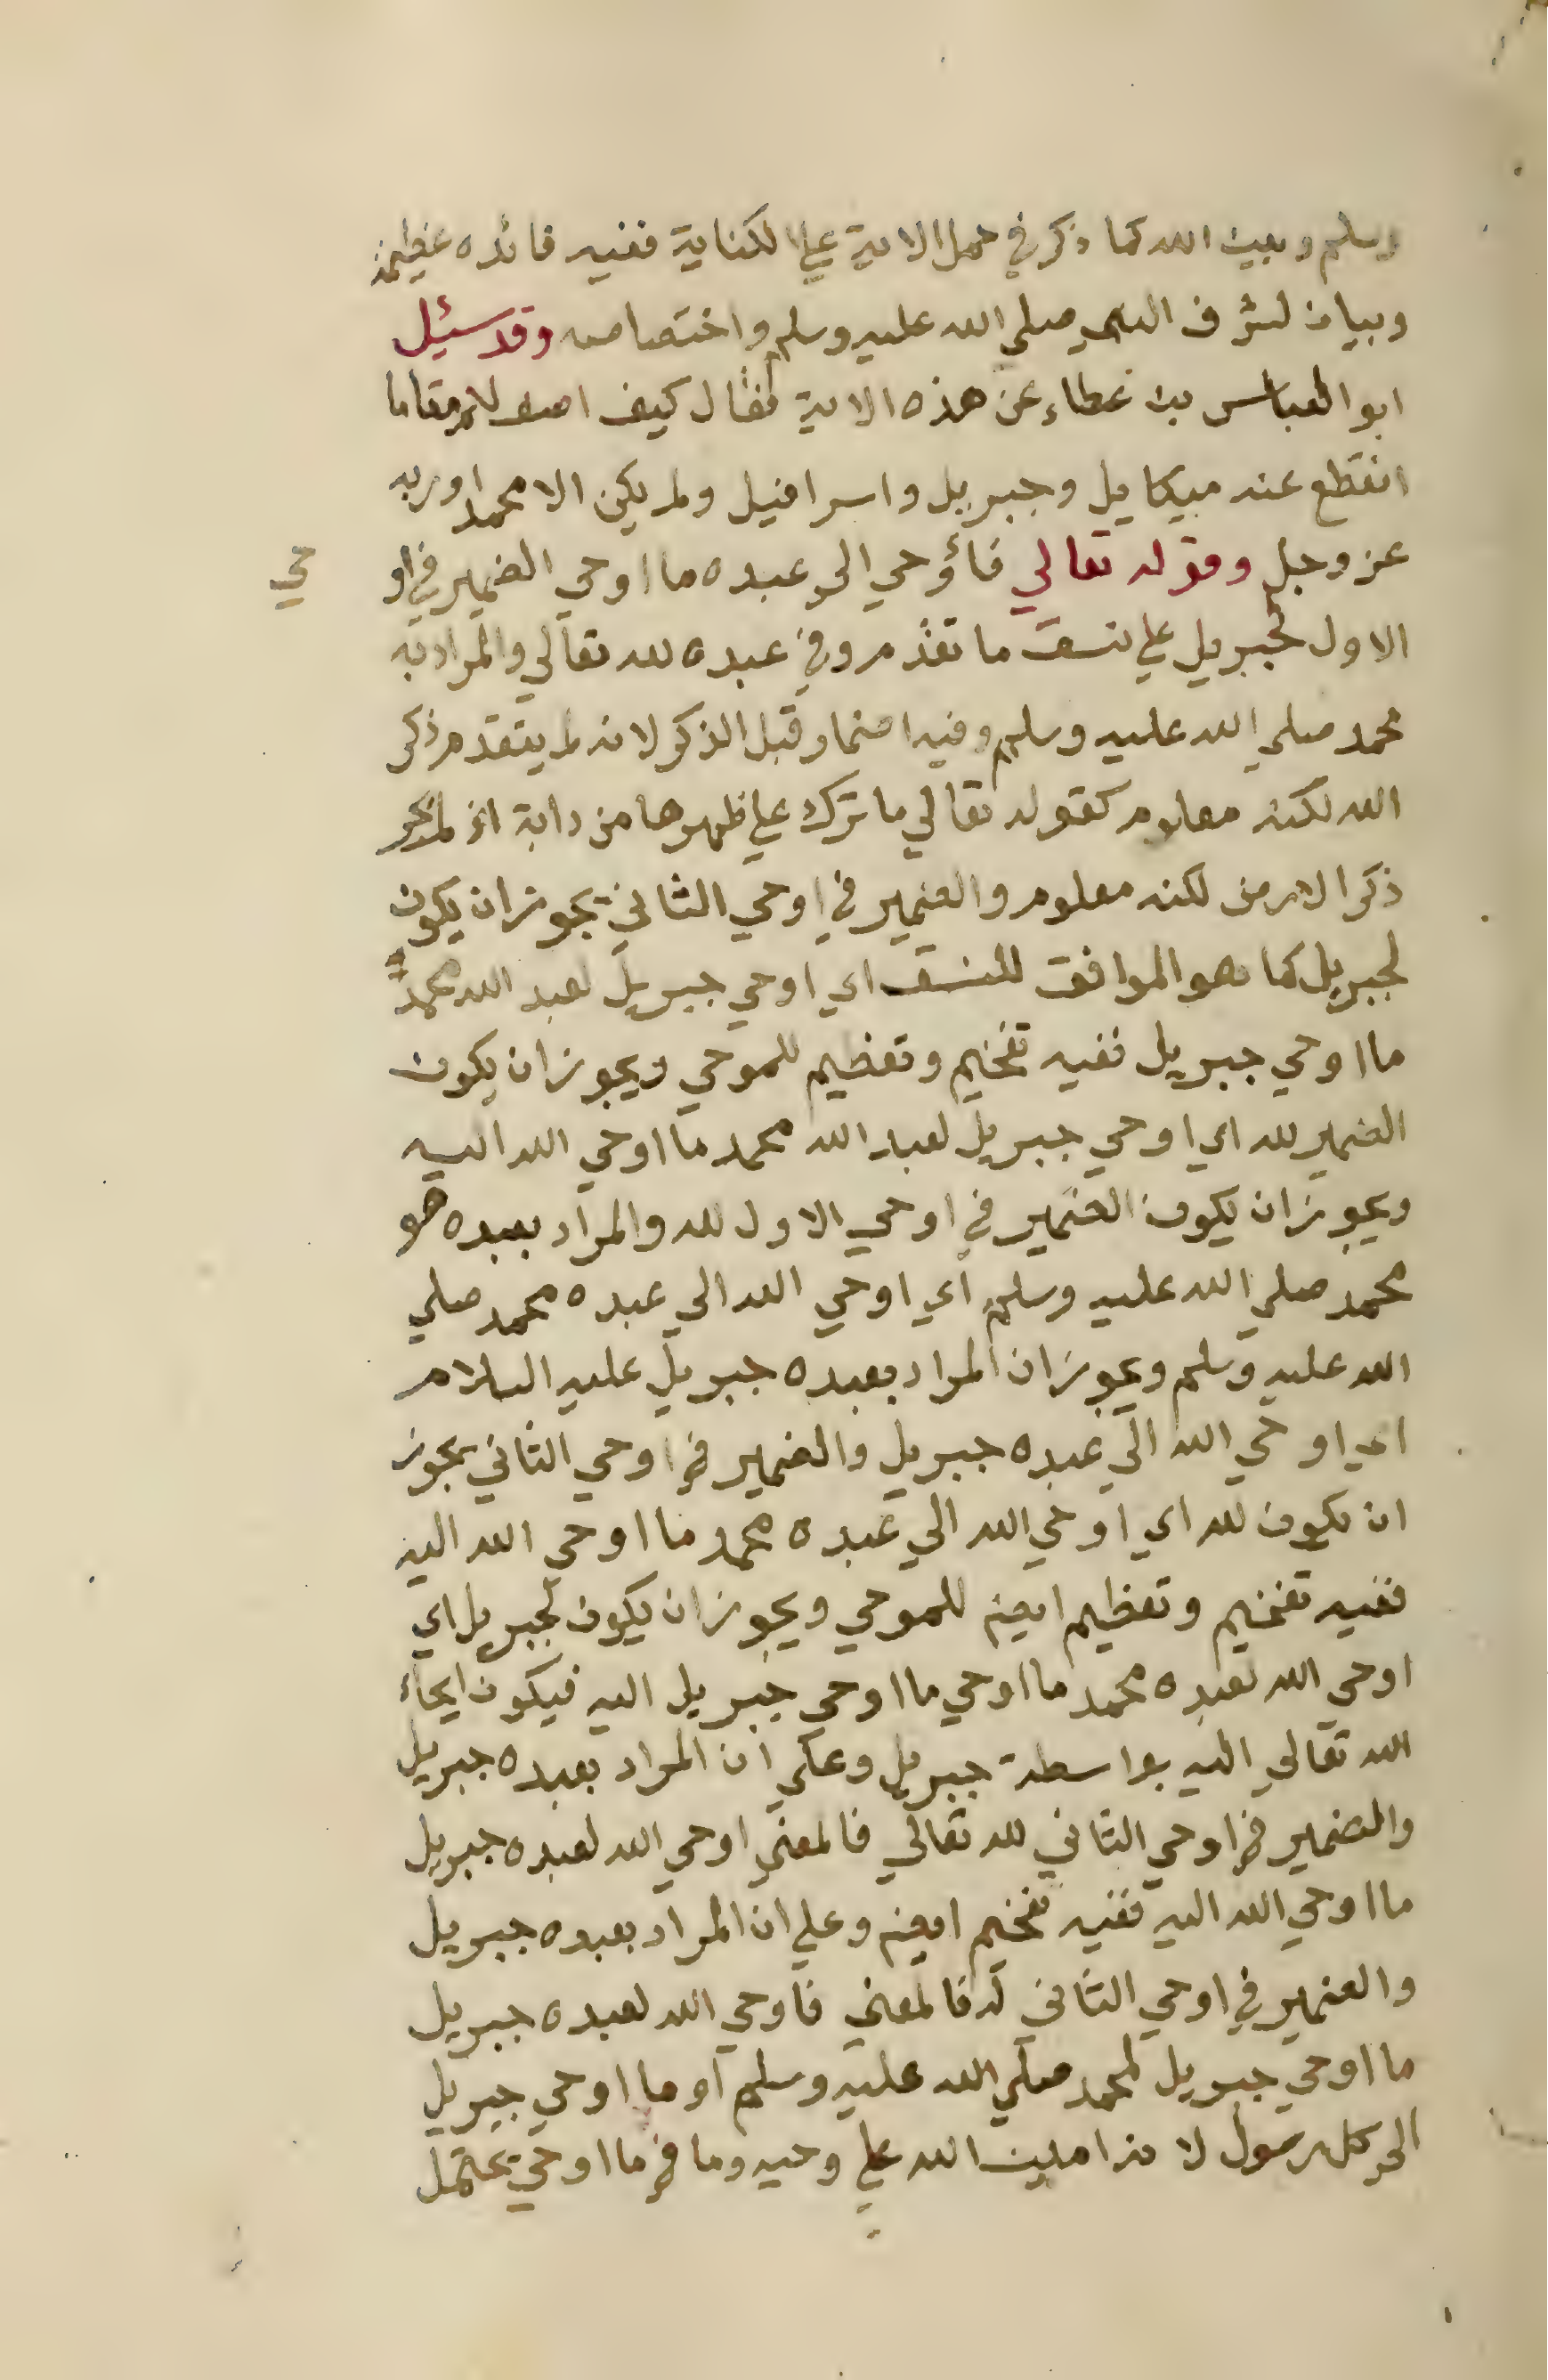 وسلم وبين الله كما ذكر في حمل الاية علي الكناية ففيه فائده عظيمة
وبيان لشرف النبي صلي الله عليه وسلم واختصاصه وقد سئيل
ابو العباس بن عطاء عن هذه الاية فقال كيف اصف لكم مقاما
انقطع عنه ميكاييل وجبريل واسرافيل ولم يكن الا محمدا وربه
عز وجل وقوله تعالي فأوحي الي عبده ما اوحي الضمير في او
حي
الاول لجبريل علي نسق ما تقدم وفي عبده لله تعالي والمراد به
محمد صلي الله عليه وسلم وفيه اضمار قبل الذكر لانه لم يتقدم ذكر
الله لكنه معلوم كقوله تعالي ما ترك علي ظهرها من دابة اذ لم يجر
ذكر الارض لكنه معلوم والضمير في اوحي الثاني يجوز ان يكون
لجبريل كما هو الموافق للنسق اي اوحي جبريل لعبد الله محمدٍ
ما اوحي جبريل ففيه تفخيم وتعظيم للموحي ويجوز ان يكون
الضمير لله اي اوحي جبريل لعبد الله محمد ما اوحي الله اليه
ويجوز ان يكون الضمير في اوحي الاول لله والمراد بعبده هو
محمد صلي الله عليه وسلم اي اوحي الله الي عبده محمد صلي
الله عليه وسلم ويجوز ان المراد بعبده جبريل عليه السلام
اي اوحي الله الي عبده جبريل والضمير في اوحي الثاني يجوز
ان يكون لله اي اوحي الله الي عبده محمد ما اوحي الله اليه
ففيه تفخيم وتعظيم ايضا للموحي ويجوز ان يكون لجبريل اي
اوحي الله لعبده محمد ما اوحي ما اوحي جبريل اليه فيكون ايحاء
الله تعالي اليه بواسطة جبريل وعلي ان المراد بعبده جبريل
والضمير في اوحي الثاني لله تعالي فالمعني اوحي الله لعبده جبريل
ما اوحي الله اليه ففيه تفخيم ايضا وعلي ان المراد بعبده جبريل
والضمير في اوحي الثاني له فالمعني فاوحي الله لعبده جبريل
ما اوحي جبريل لمحمد صلي الله عليه وسلم او ما اوحي جبريل
الي كل رسول لانه امين الله علي وحيه وما في ما اوحي يحتمل